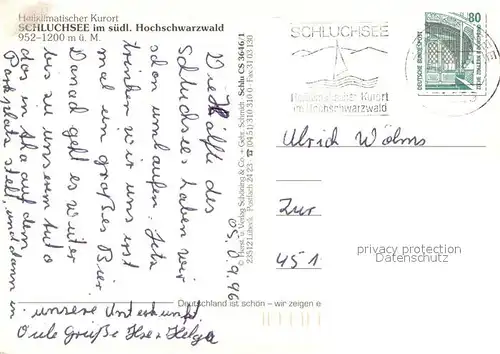 Heilklimatischer Kurort
SCHLUCHSEE im südl. Hochschwarzwald
952-1200 m ü. M.
Die Hälfte des
Schluchsees haben wir
schon umlaufen. Jetzt
trinken wir uns erst
mal ein großes Bier
Danach geht es weiter
bis zu unserem Auto
das in auf dem
Parkplatz steht, und dann in
unsere Unterkunft
Viele Grüße Helga
05.09.96
© Horst u. Verlag Schöning & Co. · Gebr. Schmidt Schlu CS 3646/1
23512 Lübeck, Postfach 24 23 ☎ (04 51) 310 310 0 · Fax 31 03 180
Deutschland ist schön – wir zeigen e
SCHLUCHSEE
Heilklimatischer Kurort
im Hochschwarzwald
80
DEUTSCHE BUNDESPOST
Ulrich Wölms
Zur
451
privacy protection
Datenschutz